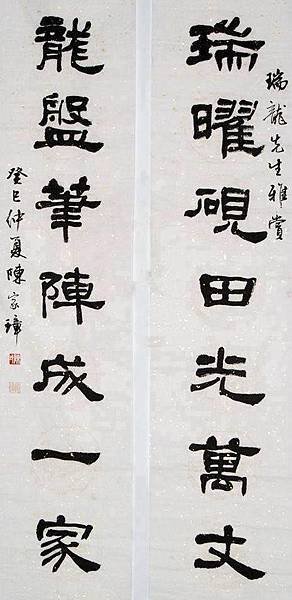 瑞龍先生雅賞
瑞曜硯田光萬丈
龍盤筆陣成一家
癸巳仲夏陳家璋